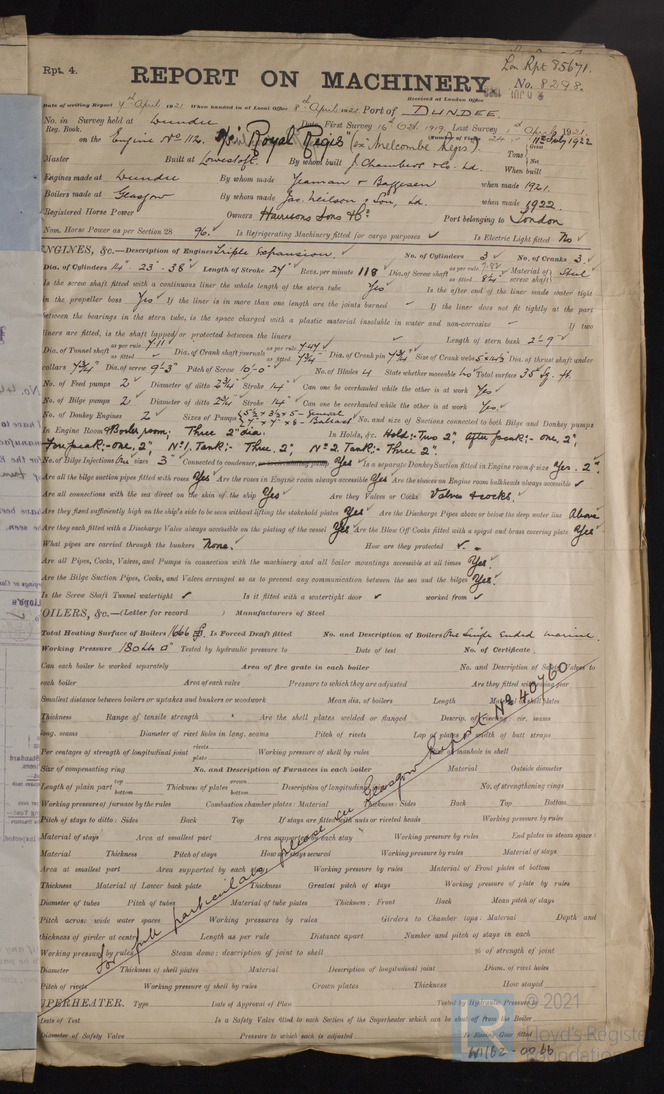 Lon Rpt 85671.
Rpt. 4.
REPORT ON MACHINERY
No. 8298.
Received at London Office
Date of writing Report 4th April 1921 When handed in at Local Office 8th April 1921 Port of DUNDEE.
No. in Survey held at Dundee Date, First Survey 16 Oct. 1919, Last Survey 1921.
Reg. Book. 11th July 1922
on the Engine No 112. S/S "Royal Regis" (ex Melcombe Regis) Tons Gross Net
Master Built at Lowestoft. By whom built J. Chambers & Co. Ld. When built
Engines made at Dundee By whom made Yeaman & Baggesen when made 1921.
Boilers made at Glasgow By whom made Jas. Neilson & Son, Ld. when made 1922.
Registered Horse Power Owners Harrisons Sons & Co Port belonging to London
Nom. Horse Power as per Section 28 96. Is Refrigerating Machinery fitted for cargo purposes Is Electric Light fitted No
ENGINES, &c.—Description of Engines Triple Expansion. No. of Cylinders 3 No. of Cranks 3.
Dia. of Cylinders 14" 23" 38" Length of Stroke 27" Revs. per minute 118 Dia. of Screw shaft as per rule as fitted 8¼" Material of screw shaft Steel
Is the screw shaft fitted with a continuous liner the whole length of the stern tube Yes Is the after end of the liner made water tight
in the propeller boss Yes If the liner is in more than one length are the joints burned If the liner does not fit tightly at the part
between the bearings in the stern tube, is the space charged with a plastic material insoluble in water and non-corrosive If two
liners are fitted, is the shaft lapped or protected between the liners Length of stern bush 2'-9"
Dia. of Tunnel shaft as per rule 7.11 as fitted Dia. of Crank shaft journals as per rule 7.47 as fitted 7¾" Dia. of Crank pin 7¾" Size of Crank webs Dia. of thrust shaft under
collars 7¾" Dia. of screw 9'-3" Pitch of Screw 10'-0" No. of Blades 4 State whether moveable No Total surface 35 Sq. ft.
No. of Feed pumps 2 Diameter of ditto 2¾" Stroke 14" Can one be overhauled while the other is at work Yes
No. of Bilge pumps 2 Diameter of ditto 2¾" Stroke 14" Can one be overhauled while the other is at work Yes.
No. of Donkey Engines 2 Sizes of Pumps 5½ × 3½ × 5 - General 7" × 7" × 8 - Ballast No. and size of Suctions connected to both Bilge and Donkey pumps
In Engine Room & Boiler room: Three 2" dia. In Holds, &c. Hold:- Two 2", After peak:- one, 2",
Fore peak:- one, 2", No 1. Tank:- Three. 2", No 2. Tank:- Three 2".
No. of Bilge Injections One sizes 3" Connected to condenser, Yes Is a separate Donkey Suction fitted in Engine room & size Yes. 2".
Are all the bilge suction pipes fitted with roses Yes Are the roses in Engine room always accessible Yes Are the sluices on Engine room bulkheads always accessible
Are all connections with the sea direct on the skin of the ship Yes Are they Valves or Cocks Valves & cocks.
Are they fixed sufficiently high on the ship's side to be seen without lifting the stokehold plates Yes Are the Discharge Pipes above or below the deep water line Above
Are they each fitted with a Discharge Valve always accessible on the plating of the vessel Yes Are the Blow Off Cocks fitted with a spigot and brass covering plate Yes
What pipes are carried through the bunkers None. How are they protected
Are all Pipes, Cocks, Valves, and Pumps in connection with the machinery and all boiler mountings accessible at all times Yes
Are the Bilge Suction Pipes, Cocks, and Valves arranged so as to prevent any communication between the sea and the bilges Yes
Is the Screw Shaft Tunnel watertight Is it fitted with a watertight door worked from
BOILERS, &c.—(Letter for record ) Manufacturers of Steel
Total Heating Surface of Boilers 1666 Is Forced Draft fitted No. and Description of Boilers One Single Ended marine.
Working Pressure 180 lbs Tested by hydraulic pressure to Date of test No. of Certificate
Can each boiler be worked separately Area of fire grate in each boiler No. and Description of Safety Valves to
each boiler Area of each valve Pressure to which they are adjusted Are they fitted with easing gear
Smallest distance between boilers or uptakes and bunkers or woodwork Mean dia. of boilers Length Material of shell plates
Thickness Range of tensile strength Are the shell plates welded or flanged Descrip. of riveting: cir. seams
long. seams Diameter of rivet holes in long. seams Pitch of rivets Lap of plates or width of butt straps
Per centages of strength of longitudinal joint rivets plate Working pressure of shell by rules Size of manhole in shell
Size of compensating ring No. and Description of Furnaces in each boiler Material Outside diameter
Length of plain part top bottom Thickness of plates crown bottom Description of longitudinal joint No. of strengthening rings
Working pressure of furnace by the rules Combustion chamber plates: Material Thickness: Sides Back Top Bottom
Pitch of stays to ditto: Sides Back Top If stays are fitted with nuts or riveted heads Working pressure by rules
Material of stays Area at smallest part Area supported by each stay Working pressure by rules End plates in steam space:
Material Thickness Pitch of stays How are stays secured Working pressure by rules Material of stays
Area at smallest part Area supported by each stay Working pressure by rules Material of Front plates at bottom
Thickness Material of Lower back plate Thickness Greatest pitch of stays Working pressure of plate by rules
Diameter of tubes Pitch of tubes Material of tube plates Thickness: Front Back Mean pitch of stays
Pitch across wide water spaces Working pressures by rules Girders to Chamber tops: Material Depth and
thickness of girder at centre Length as per rule Distance apart Number and pitch of stays in each
Working pressure by rules Steam dome: description of joint to shell % of strength of joint
Diameter Thickness of shell plates Material Description of longitudinal joint Diam. of rivet holes
Pitch of rivets Working pressure of shell by rules Crown plates Thickness How stayed
for full particulars please see Glasgow Report No 40760
SUPERHEATER. Type Date of Approval of Plan Tested by Hydraulic Pressure to
Date of Test Is a Safety Valve fitted to each Section of the Superheater which can be shut off from the Boiler
Diameter of Safety Valve Pressure to which each is adjusted Is Easing Gear fitted
© 2021
Lloyd's Register
Foundation
W1162-0066